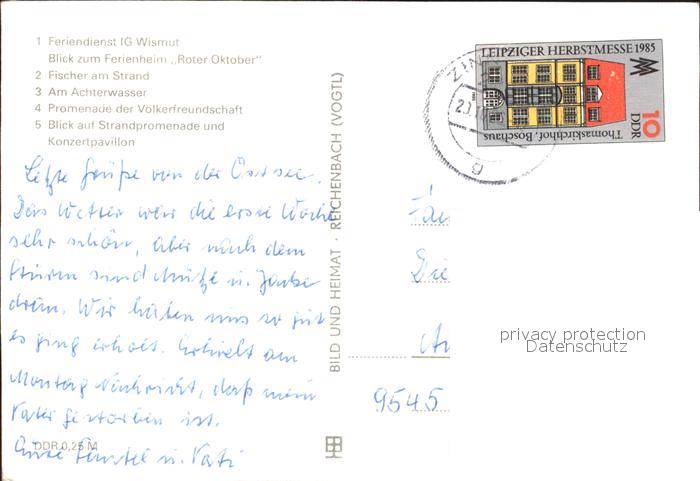 1 Feriendienst IG Wismut
Blick zum Ferienheim „Roter Oktober"
2 Fischer am Strand
3 Am Achterwasser
4 Promenade der Völkerfreundschaft
5 Blick auf Strandpromenade und
Konzertpavillon
Letzte Grüße von der Ostsee.
Das Wetter war die erste Woche
sehr schön, aber nach dem
Sturm sind Mütze u. Jacke
dran. Wir haben uns so gut
es ging erholt. Erhielt am
Montag Nachricht, daß mein
Vater gestorben ist.
u. Vati
DDR 0,25 M
BILD UND HEIMAT · REICHENBACH (VOGTL)
LEIPZIGER HERBSTMESSE 1985
10
DDR
Thomaskirchhof, Boschaus
ZIN
g
Fam
Die
9545
privacy protection
Datenschutz